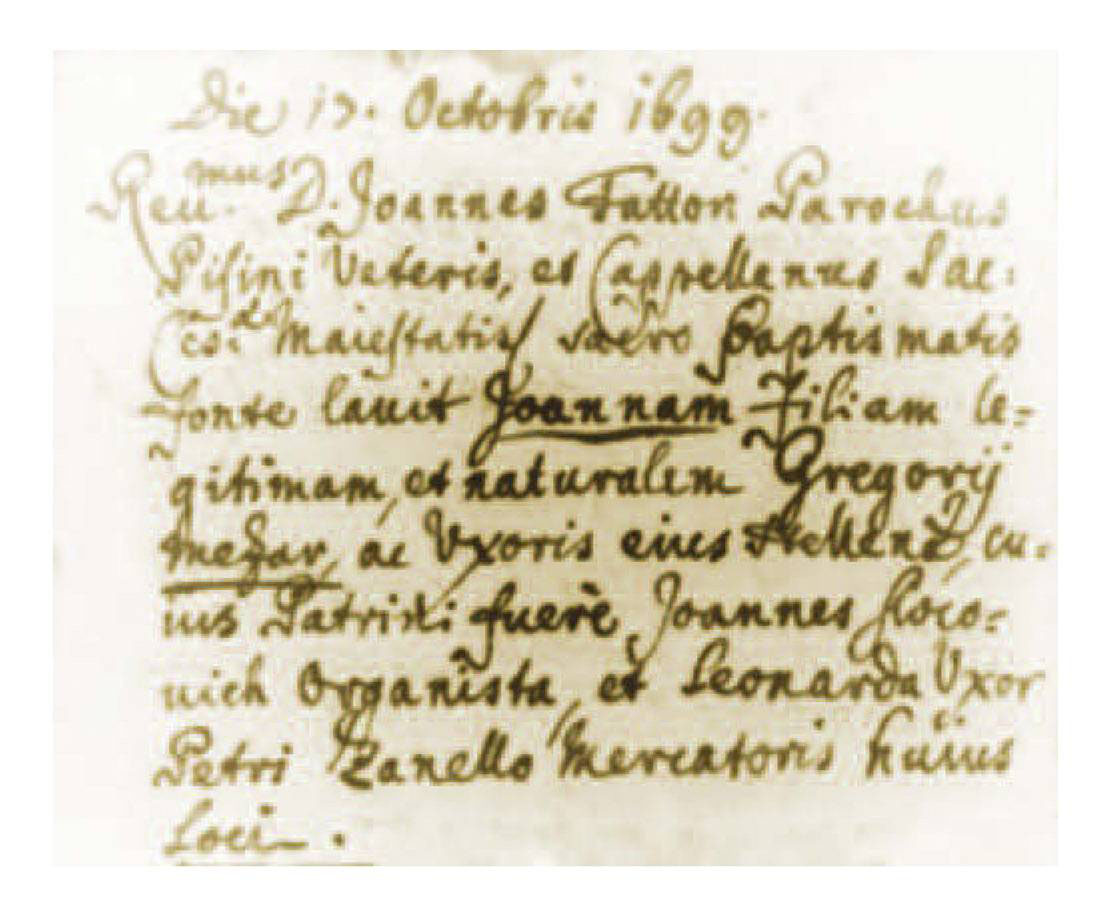 Die 17. Octobris 1699.
Reu.mus D. Joannes Fattori Parochus
Pisini Veteris, et Cappellanus Sac:
Cs: Maiestatis sacro Baptismatis
fonte lauit Joannam Filiam le-
gitimam, et naturalem Gregorij
Mezar, ac Vxoris eius Hellenæ, cu-
ius Patrini fuerè Joannes
uich Organista, et Leonarda Vxor
Petri Zanello Mercatoris huius
Loci.